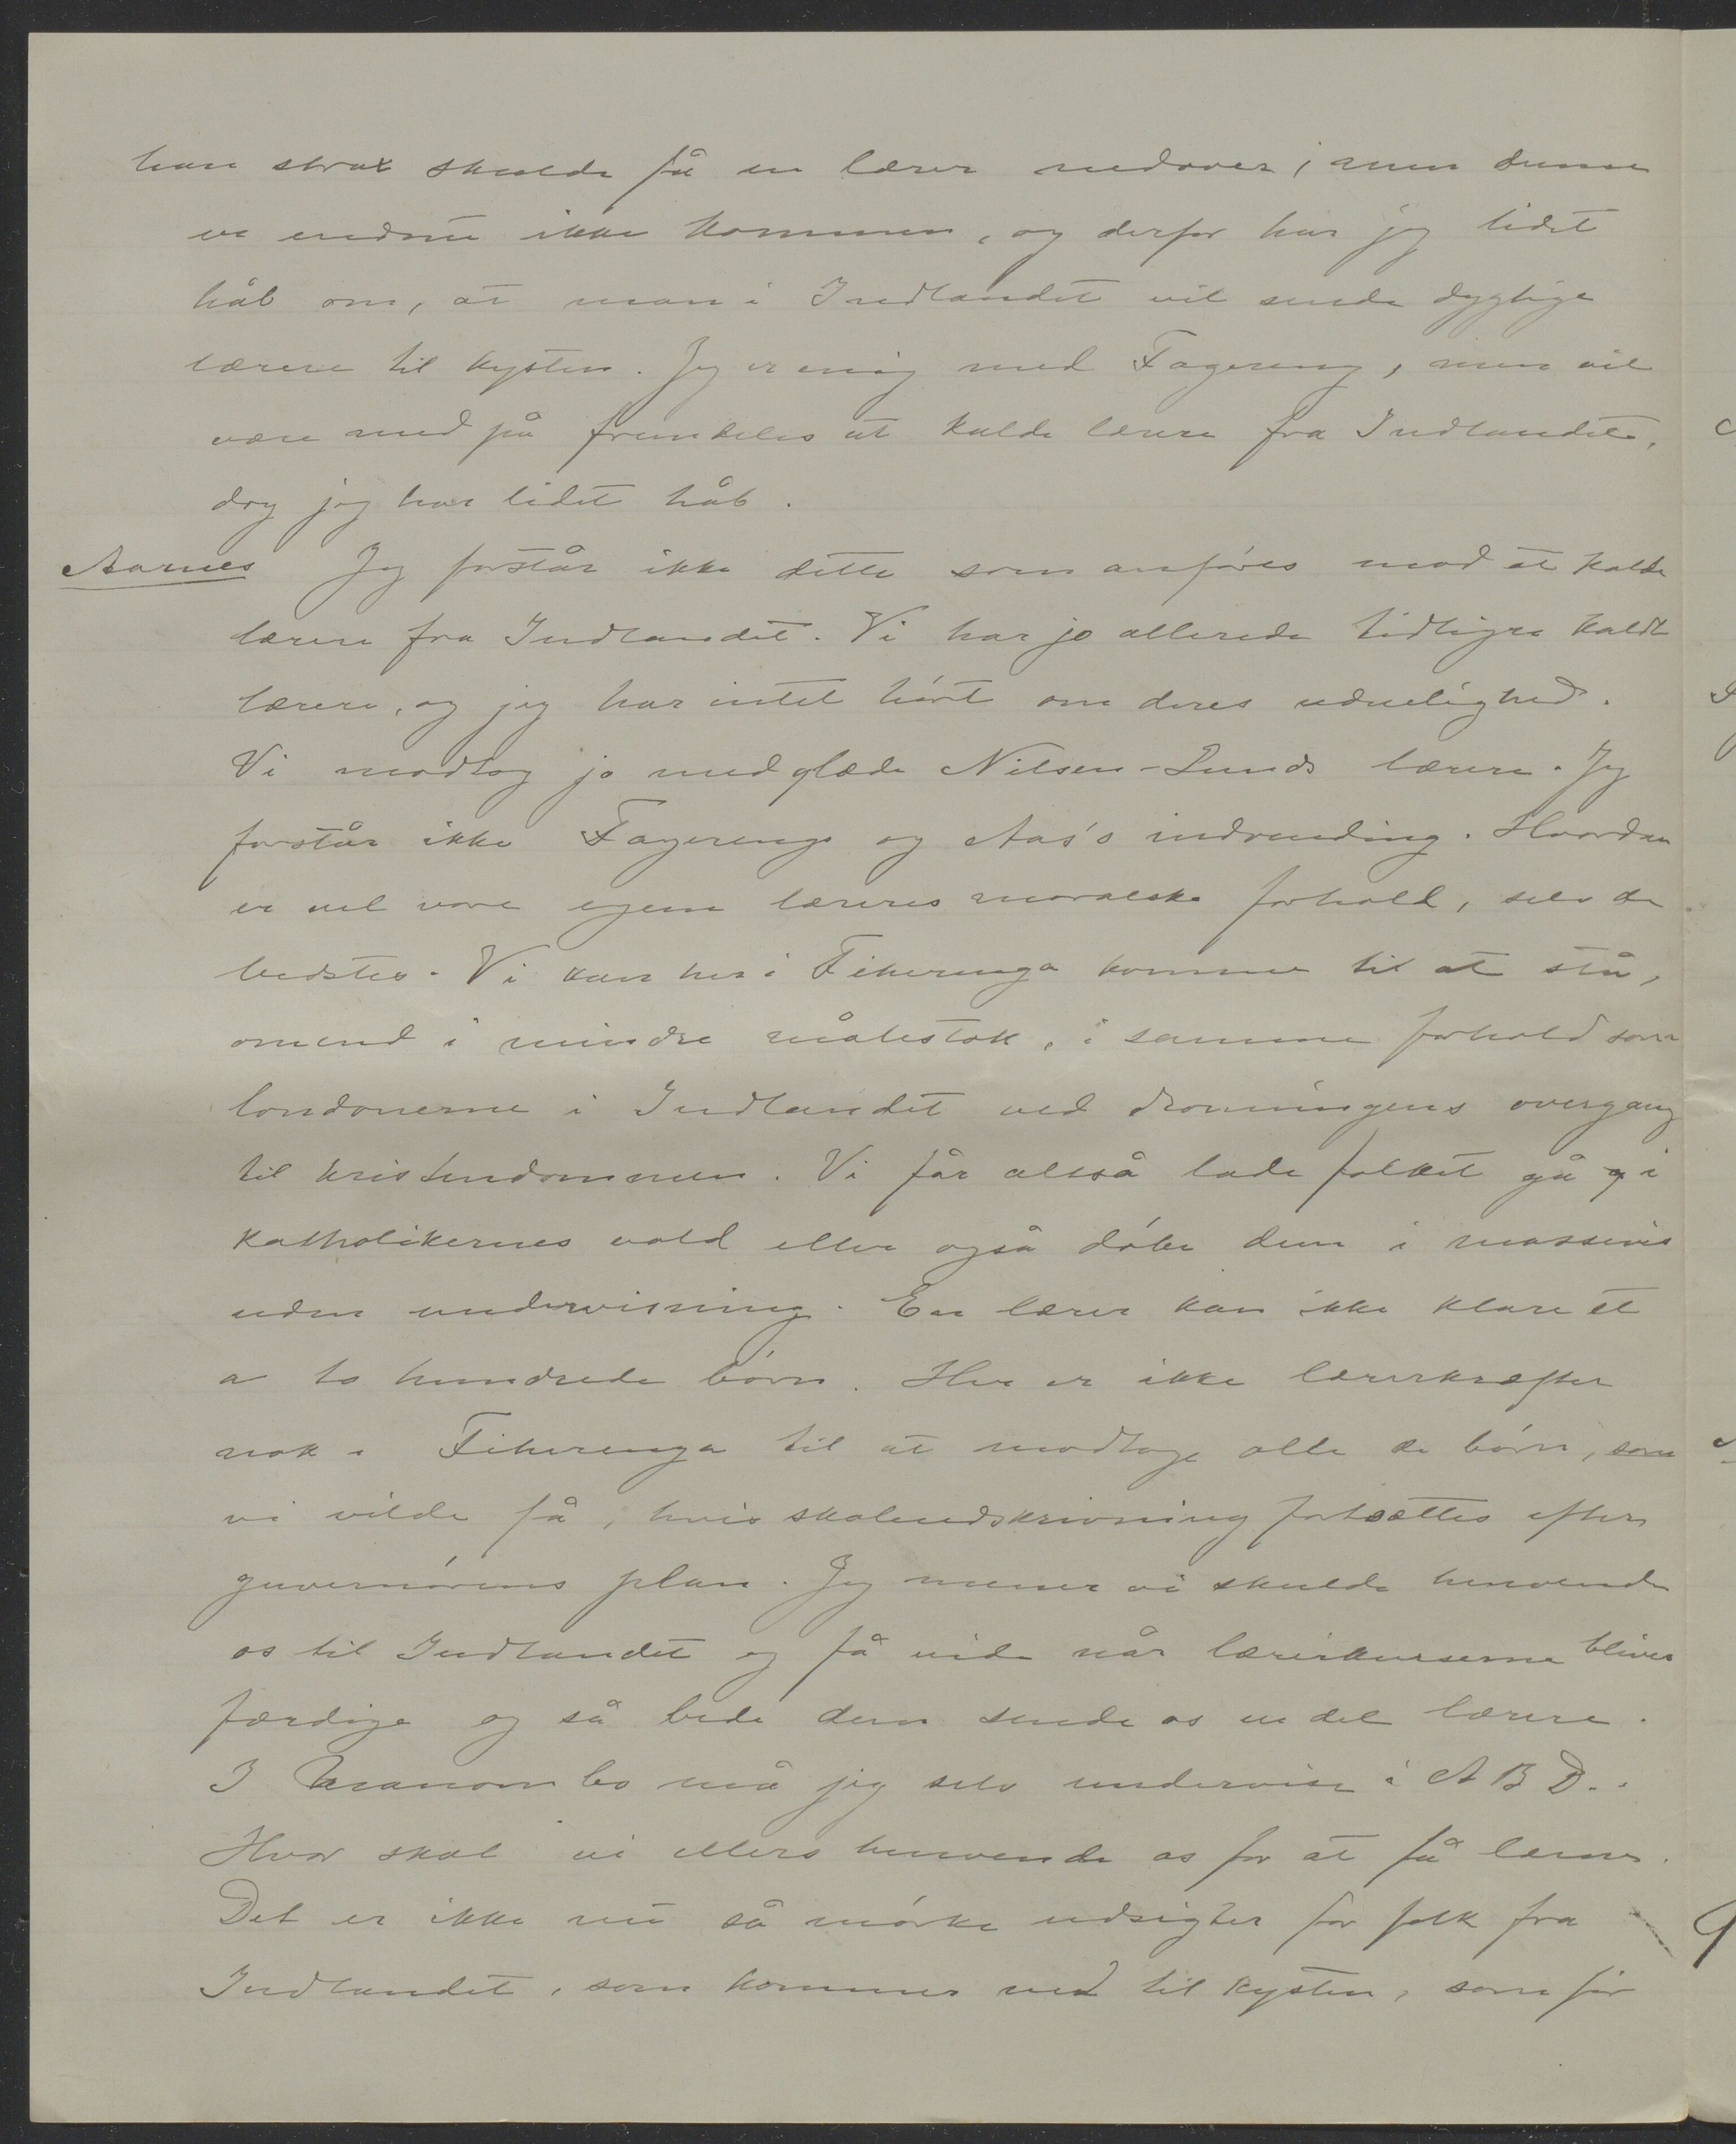 han strax skulde få en lærer nedover, men denne
er endnu ikke kommen, og derfor har jeg lidet
håb om, at man i Indlandet vil sende dygtige
lærere til kysten. Jeg er enig med Fagereng, men vil
være med på fremdeles at kalde lærere fra Indlandet,
dog jeg har lidet håb.
Aarnes Jeg forstår ikke dette som anføres mod at kalde
lærere fra Indlandet. Vi har jo allerede tidligere kaldt
lærere, og jeg har intet hørt om deres uduelighed.
Vi modtog jo med glæde Nilsen-Lunds lærere. Jeg
forstår ikke Fagerengs og Aas's indvending. Hvordan
er vel vore egene læreres moralske forhold, selv de
bedstes. Vi kan her i Fiherenga komme til at stå,
omend i mindre målestok, i samme forhold som
londonerne i Indlandet ved dronningens overgang
til kristendommen. Vi får altså lade folket gå i
katholikernes vold eller også døbe dem i massevis
uden undervisning. En lærer kan ikke klare et
a to hundrede børn. Her er ikke lærerkræfter
nok i Fiherenga til at modtage alle de børn, som
vi vilde få, hvis skoleudskrivning fortsættes efter
guvernørens plan. Jeg mener vi skulde henvende
os til Indlandet og få vide når lærerkurserne bliver
færdige og så bede dem sende os en del lærere.
I Manombo må jeg selv undervise i A B D.
Hvor skal vi ellers henvende os for at få lærere.
Det er ikke nu så mørke udsigter for folk fra
Indlandet, som kommer ned til kysten, som før